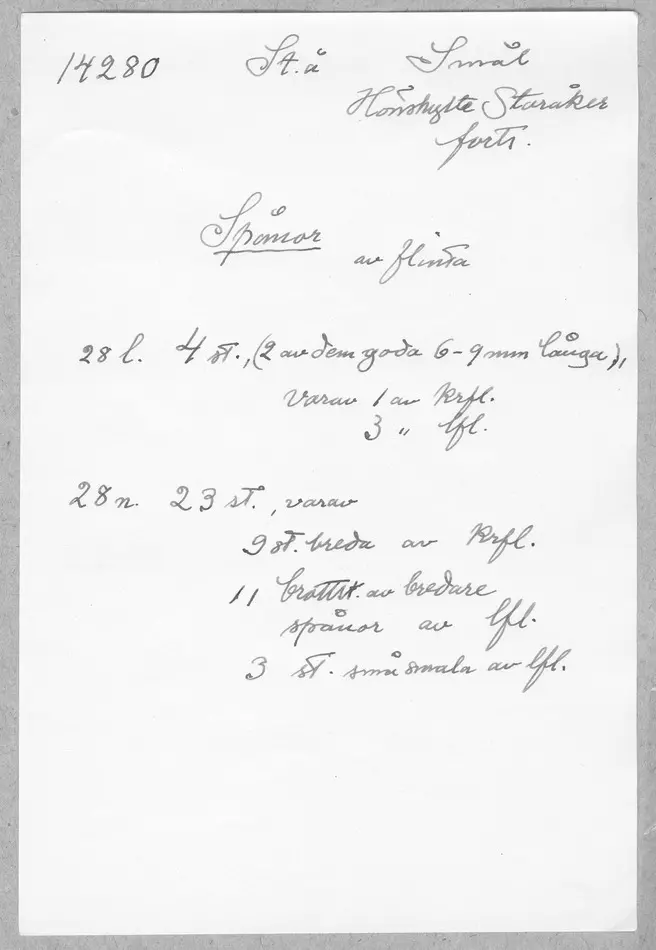 14280 St.å Smål
Hönshylte Storåker
forts.
Spånor
av flinta
28 l. 4 st., (2 av dem goda 6-9 mm långa),
varav 1 av Krfl.
3 " lfl.
28 n. 23 st., varav
9 st. breda av Krfl.
11 av bredare
spånor av lfl.
3 st. små smala av lfl.